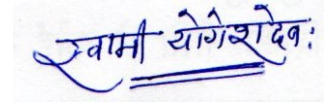 स्वामी योगेशदेवः